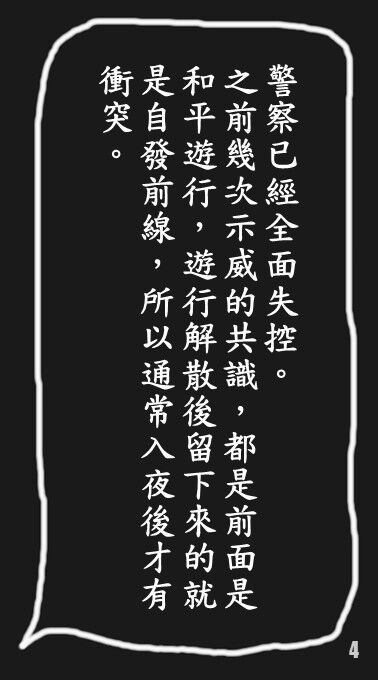 警察已經全面失控。
之前幾次示威的共識，都是前面是
和平遊行，遊行解散後留下來的就
是自發前線，所以通常入夜後才有
衝突。
4